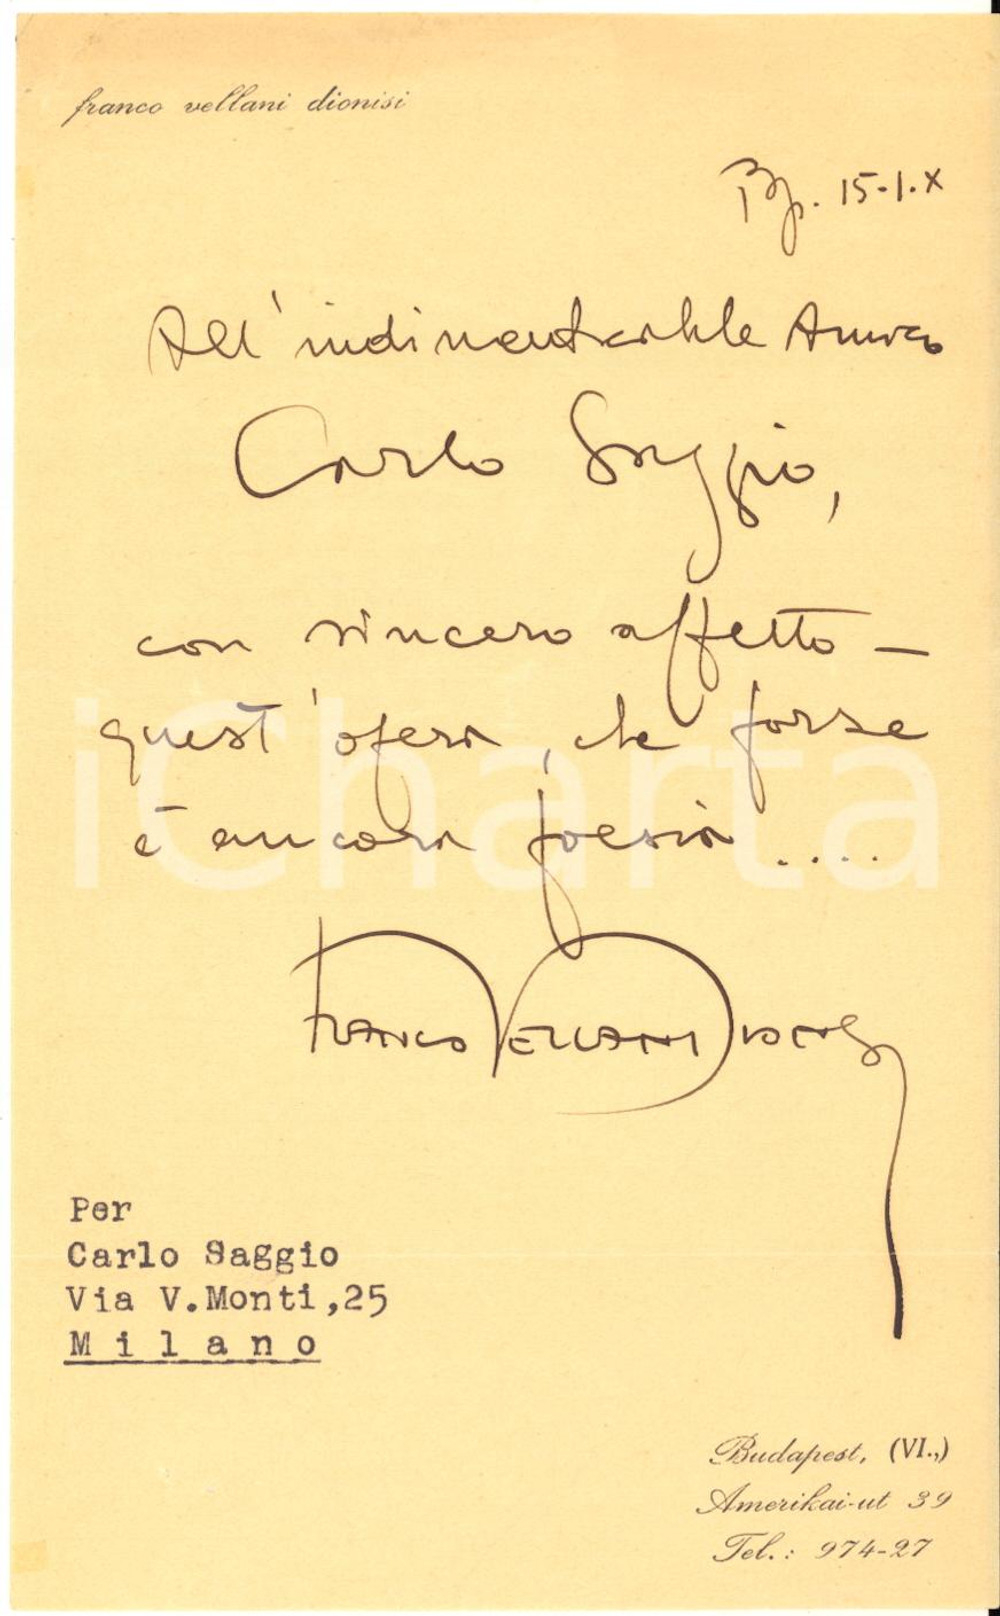 franco vellani dionisi
Bp. 15-1.X
All'indimenticabile Amico
Carlo Saggio,
con sincero affetto —
quest'opera, che forse
è ancora poesia ....
Franco Vellani Dionisi
Per
Carlo Saggio
Via V.Monti,25
Milano
Budapest, (VI.,)
Amerikai-ut 39
Tel.: 974-27
iCharta